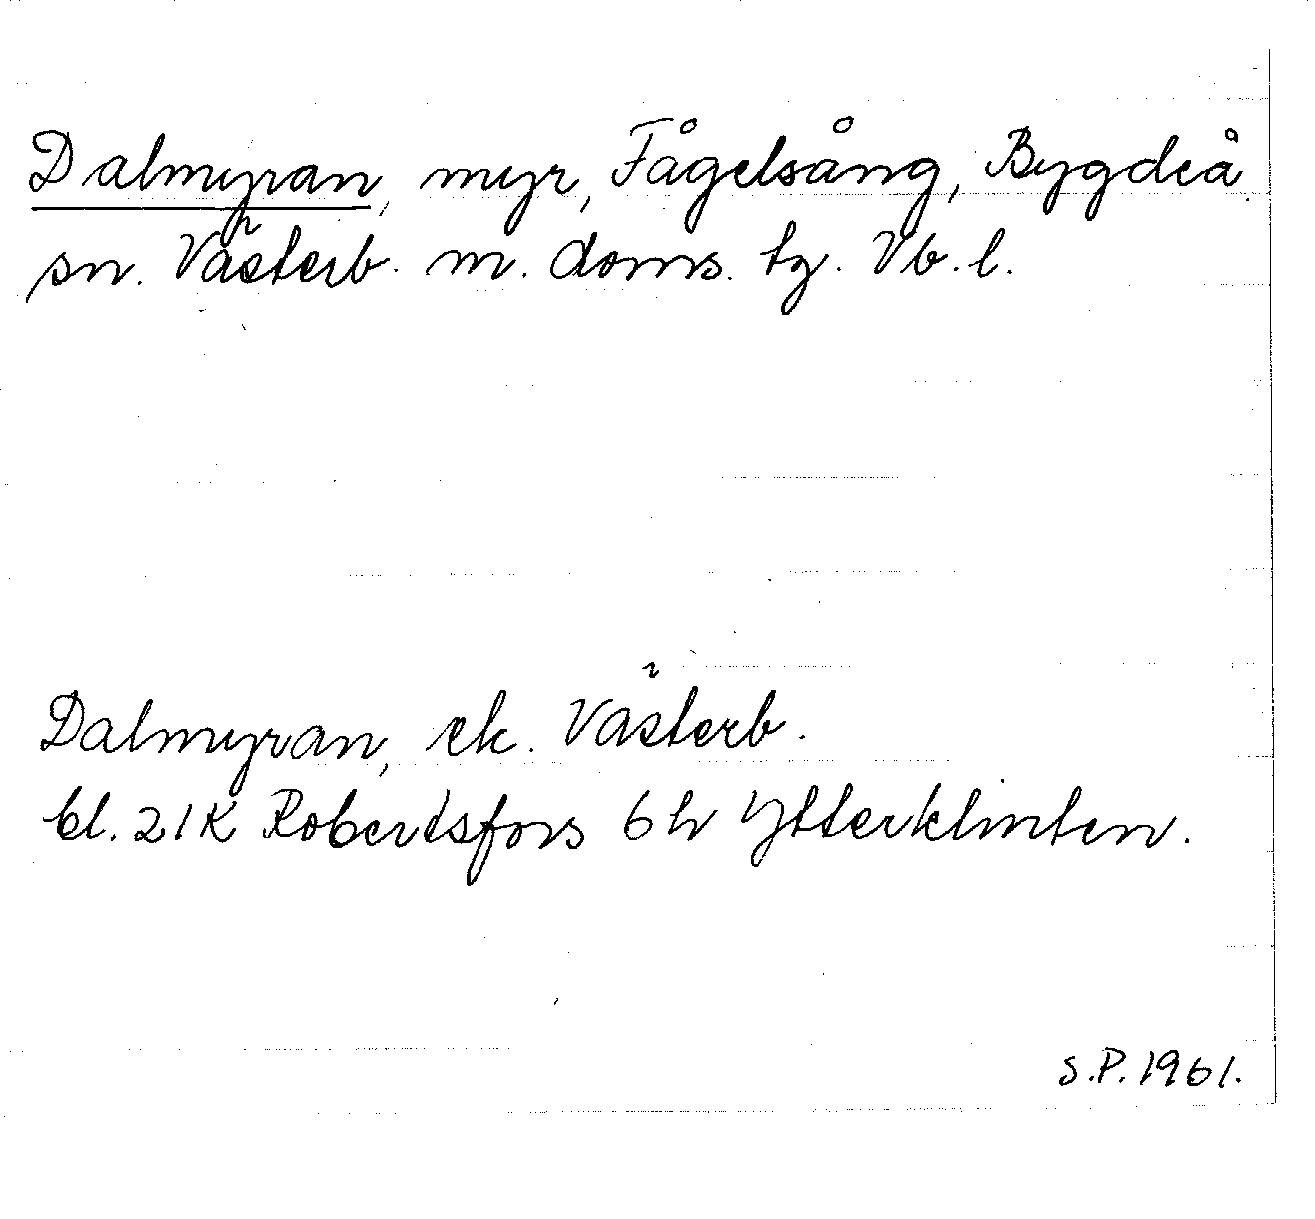 Dalmyran, myr, Fågelsång, Bygdeå
sn. Västerb. m. doms. tg. Vb. l.
Dalmyran, ek. Västerb.
bl. 21K Robertsfors 6 h Ytterklinten.
S.P. 1961.